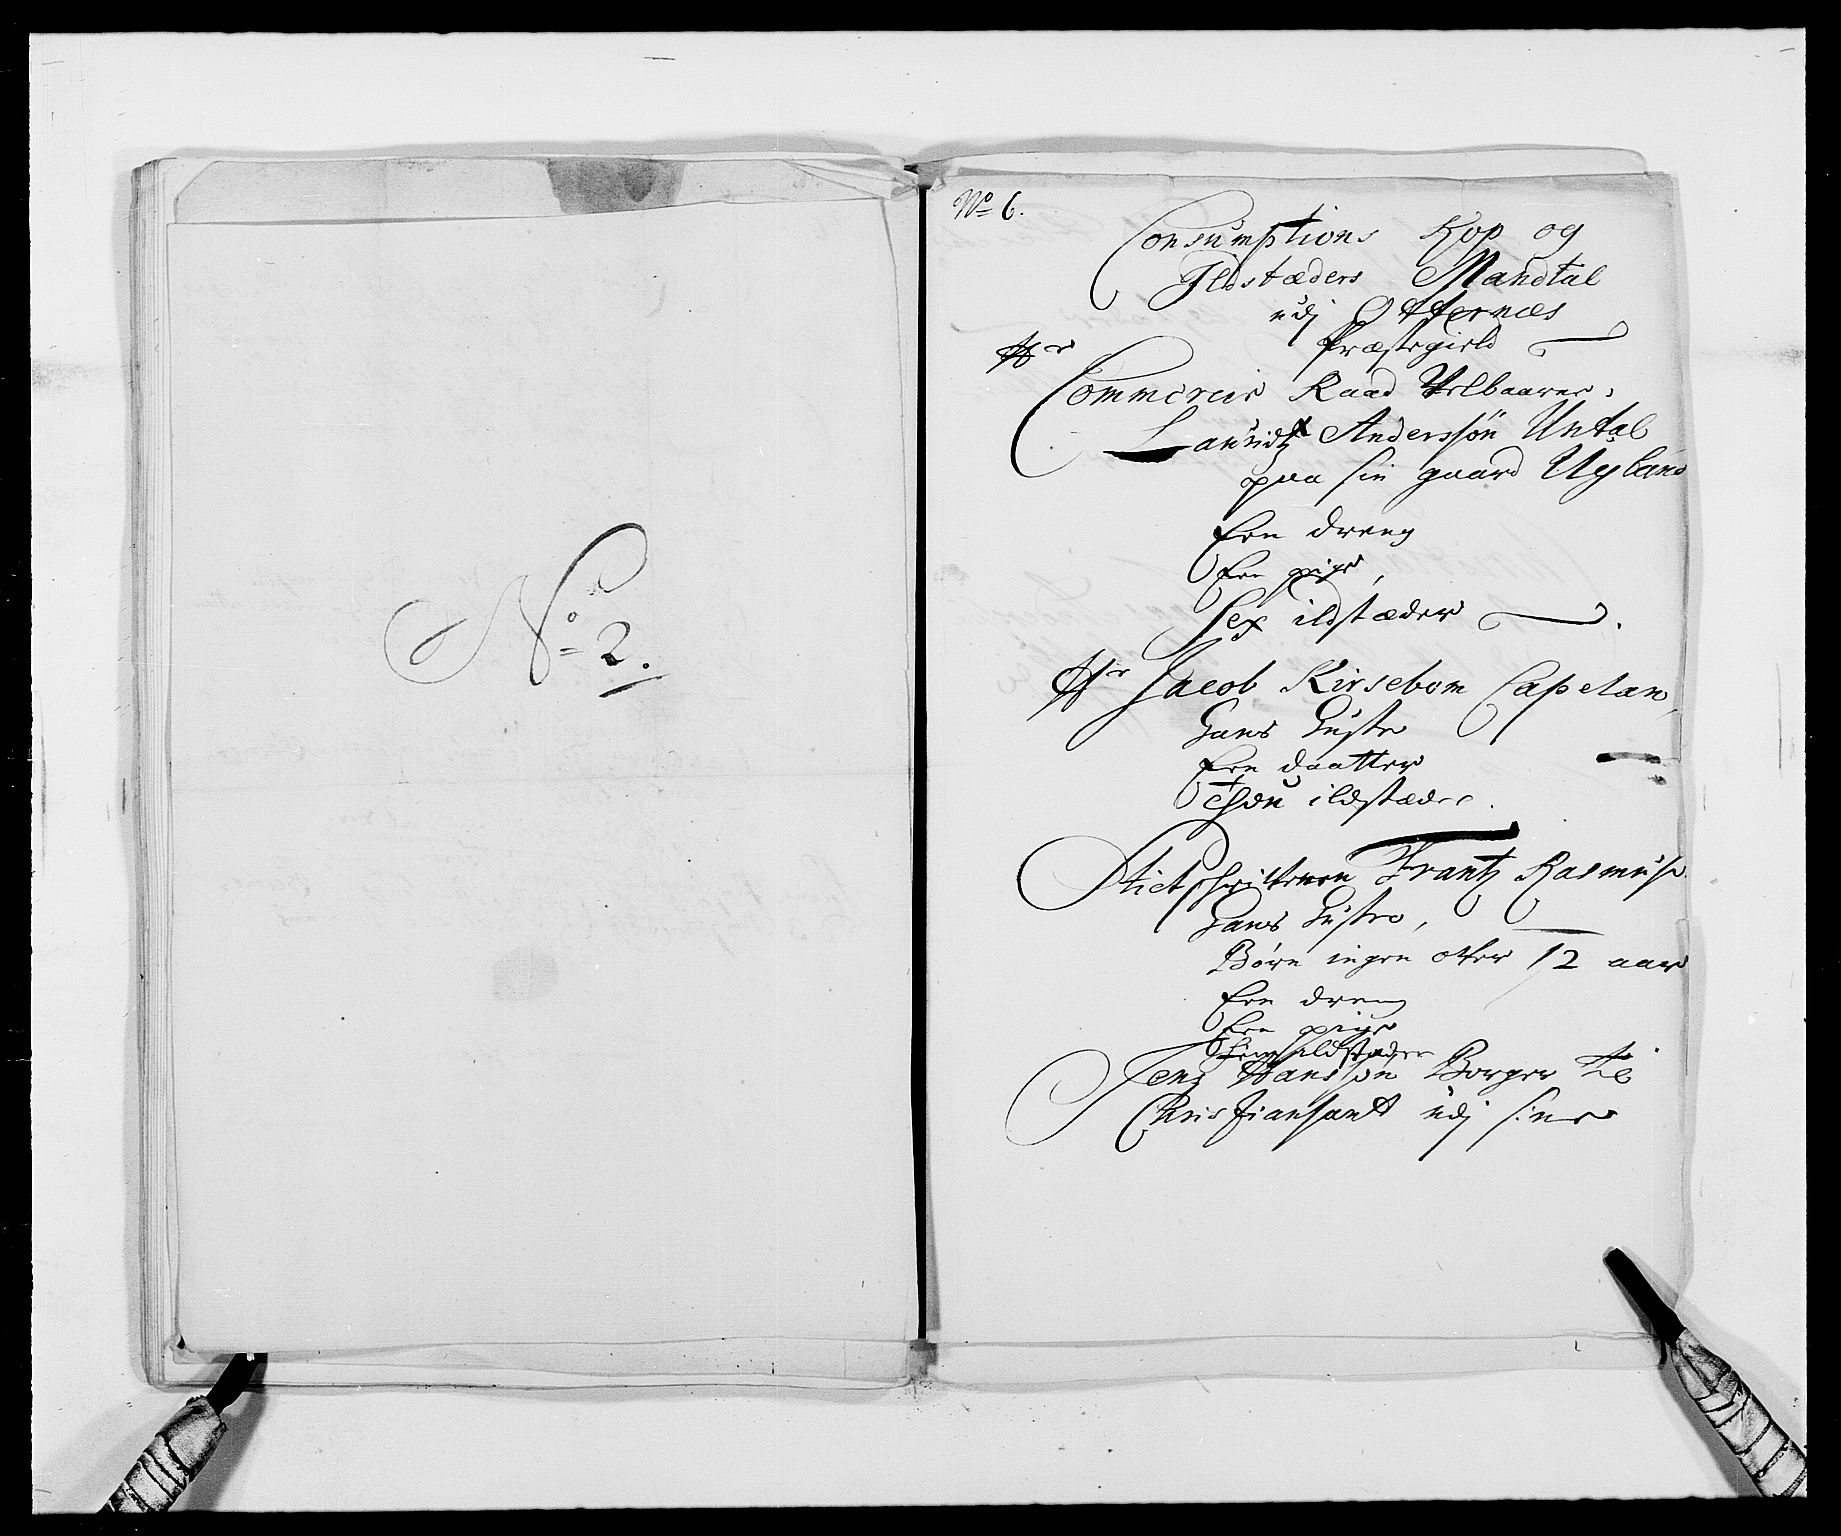 No 2.
No 6.
Consumptions Kop og
Ildstæders Mandtal
udj Otternæs
Præstegield
Hr
Commercie Raad Velbaarne
Lauridtz Anderssøn Untal
paa sin gaard Uyland
Een dreng
Een pige,
Sex ildstæder
Hr Jacob Kirsebom Capelan
Hans Hustro
Een daatter
Thou ildstæder.
Frantz Rasmuss
Hans Hustro,
Børn ingen ofver 12 aar
Een dreng
Een pige
ildstæder
Jens Hanssøn Borger til
Christiansandt udj sine